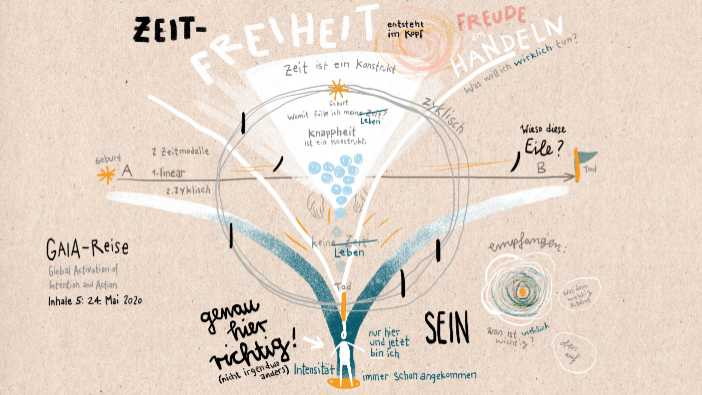 ZEIT-
FREIHEIT
entsteht
im Kopf
FREUDE
im
HANDELN
Was will ich wirklich tun?
Zeit ist ein Konstrukt
Geburt
Womit fülle ich meine Zeit?
Leben
Knappheit
ist ein Konstrukt
zyklisch
Wieso diese
Eile?
Geburt
A
2 Zeitmodelle
1. linear
2. zyklisch
B
Tod
keine Zeit
Leben
Tod
GAIA-Reise
Global Activation of
Intention and Action
Inhale 5: 24. Mai 2020
genau
hier
richtig!
(nicht irgendwo
anders)
Intensität
nur hier
und jetzt
bin ich
immer schon angekommen
SEIN
empfangen:
Was ist wirklich
wichtig?